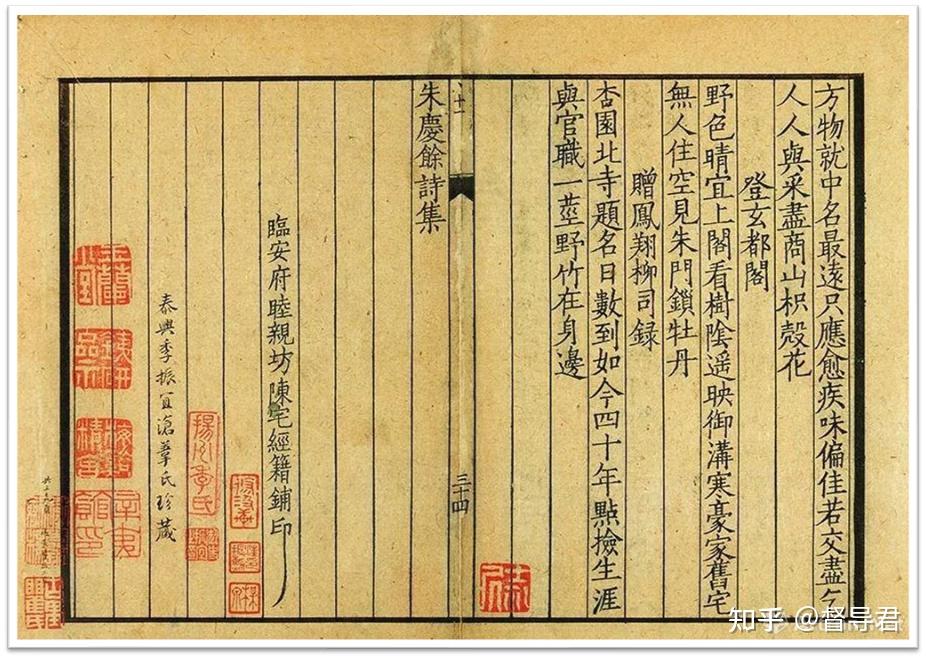 方物就中名最遠只應愈疾味偏佳若交盡乞
人人與采盡商山枳殼花
登玄都閣
野色晴宜上閣看樹陰遥映御溝寒豪家舊宅
無人住空見朱門鎖牡丹
贈鳳翔柳司録
杏園北寺題名日數到如今四十年點撿生涯
與官職一莖野竹在身邊
三十四
朱慶餘詩集
臨安府睦親坊陳宅經籍鋪印
泰興季振宜滄葦氏珍藏
揚州季氏
知乎 @督导君